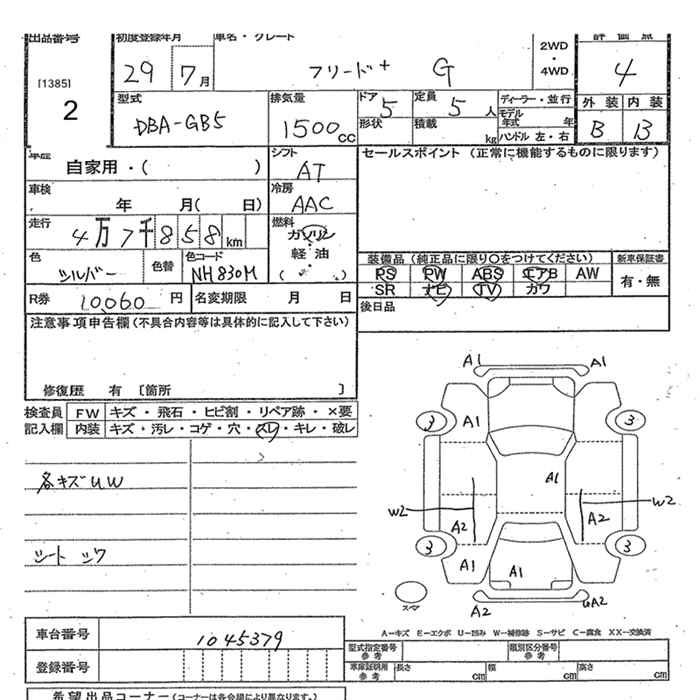 出品番号 初度登録年月 車名・グレード 評価点
[1385] 2
29 7月 フリード+ G 2WD・4WD 4
型式 排気量 ドア 定員 ディーラー・並行 外装 内装
DBA-GB5 1500cc 5 5人 モデル年式 年 B B
形状 積載 kg ハンドル 左・右
自家用・( ) シフト AT セールスポイント (正常に機能するものに限ります)
車検 年 月( 日) 冷房 AAC
走行 4万7千858km 燃料 ガソリン 軽油 ( )
色 シルバー 色替 色コード NH830M
装備品 (純正品に限り○をつけてください) 新車保証書
PS PW ABS エアB AW 有・無
SR ナビ TV カワ
R券 10,060円 名変期限 月 日 後日品
注意事項申告欄 (不具合内容等は具体的に記入して下さい)
修復歴 有 [箇所 ]
検査員 FW キズ・飛石・ヒビ割・リペア跡・×要
記入欄 内装 キズ・汚レ・コゲ・穴・スレ・キレ・破レ
各キズUW
シート シワ
A1 A1
3 A1 3
A1
W2 W2
A2 A2
3 3
A1 A1
スペア A2 UA2
A―キズ E―エクボ U―凹み W―補修跡 S―サビ C―腐食 XX―交換済
車台番号 1045379
登録番号
型式指定番号 参考 類別区分番号 参考
車庫証明用 参考 長さ cm 幅 cm 高さ cm
希望出品コーナー (コーナーは各会場により異なります。)